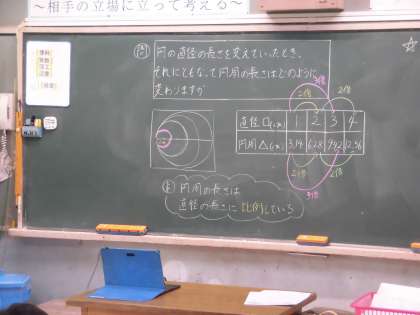 ~相手の立場に立って考える~
問 円の直径の長さを変えていったとき、
それにともなって円周の長さはどのように
変わりますか
3倍
2倍 2倍
直径□(cm) 1 2 3 4
円周△(cm) 3.14 6.28 9.42 12.56
2倍 2倍
3倍
ま 円周の長さは
直径の長さに比例している